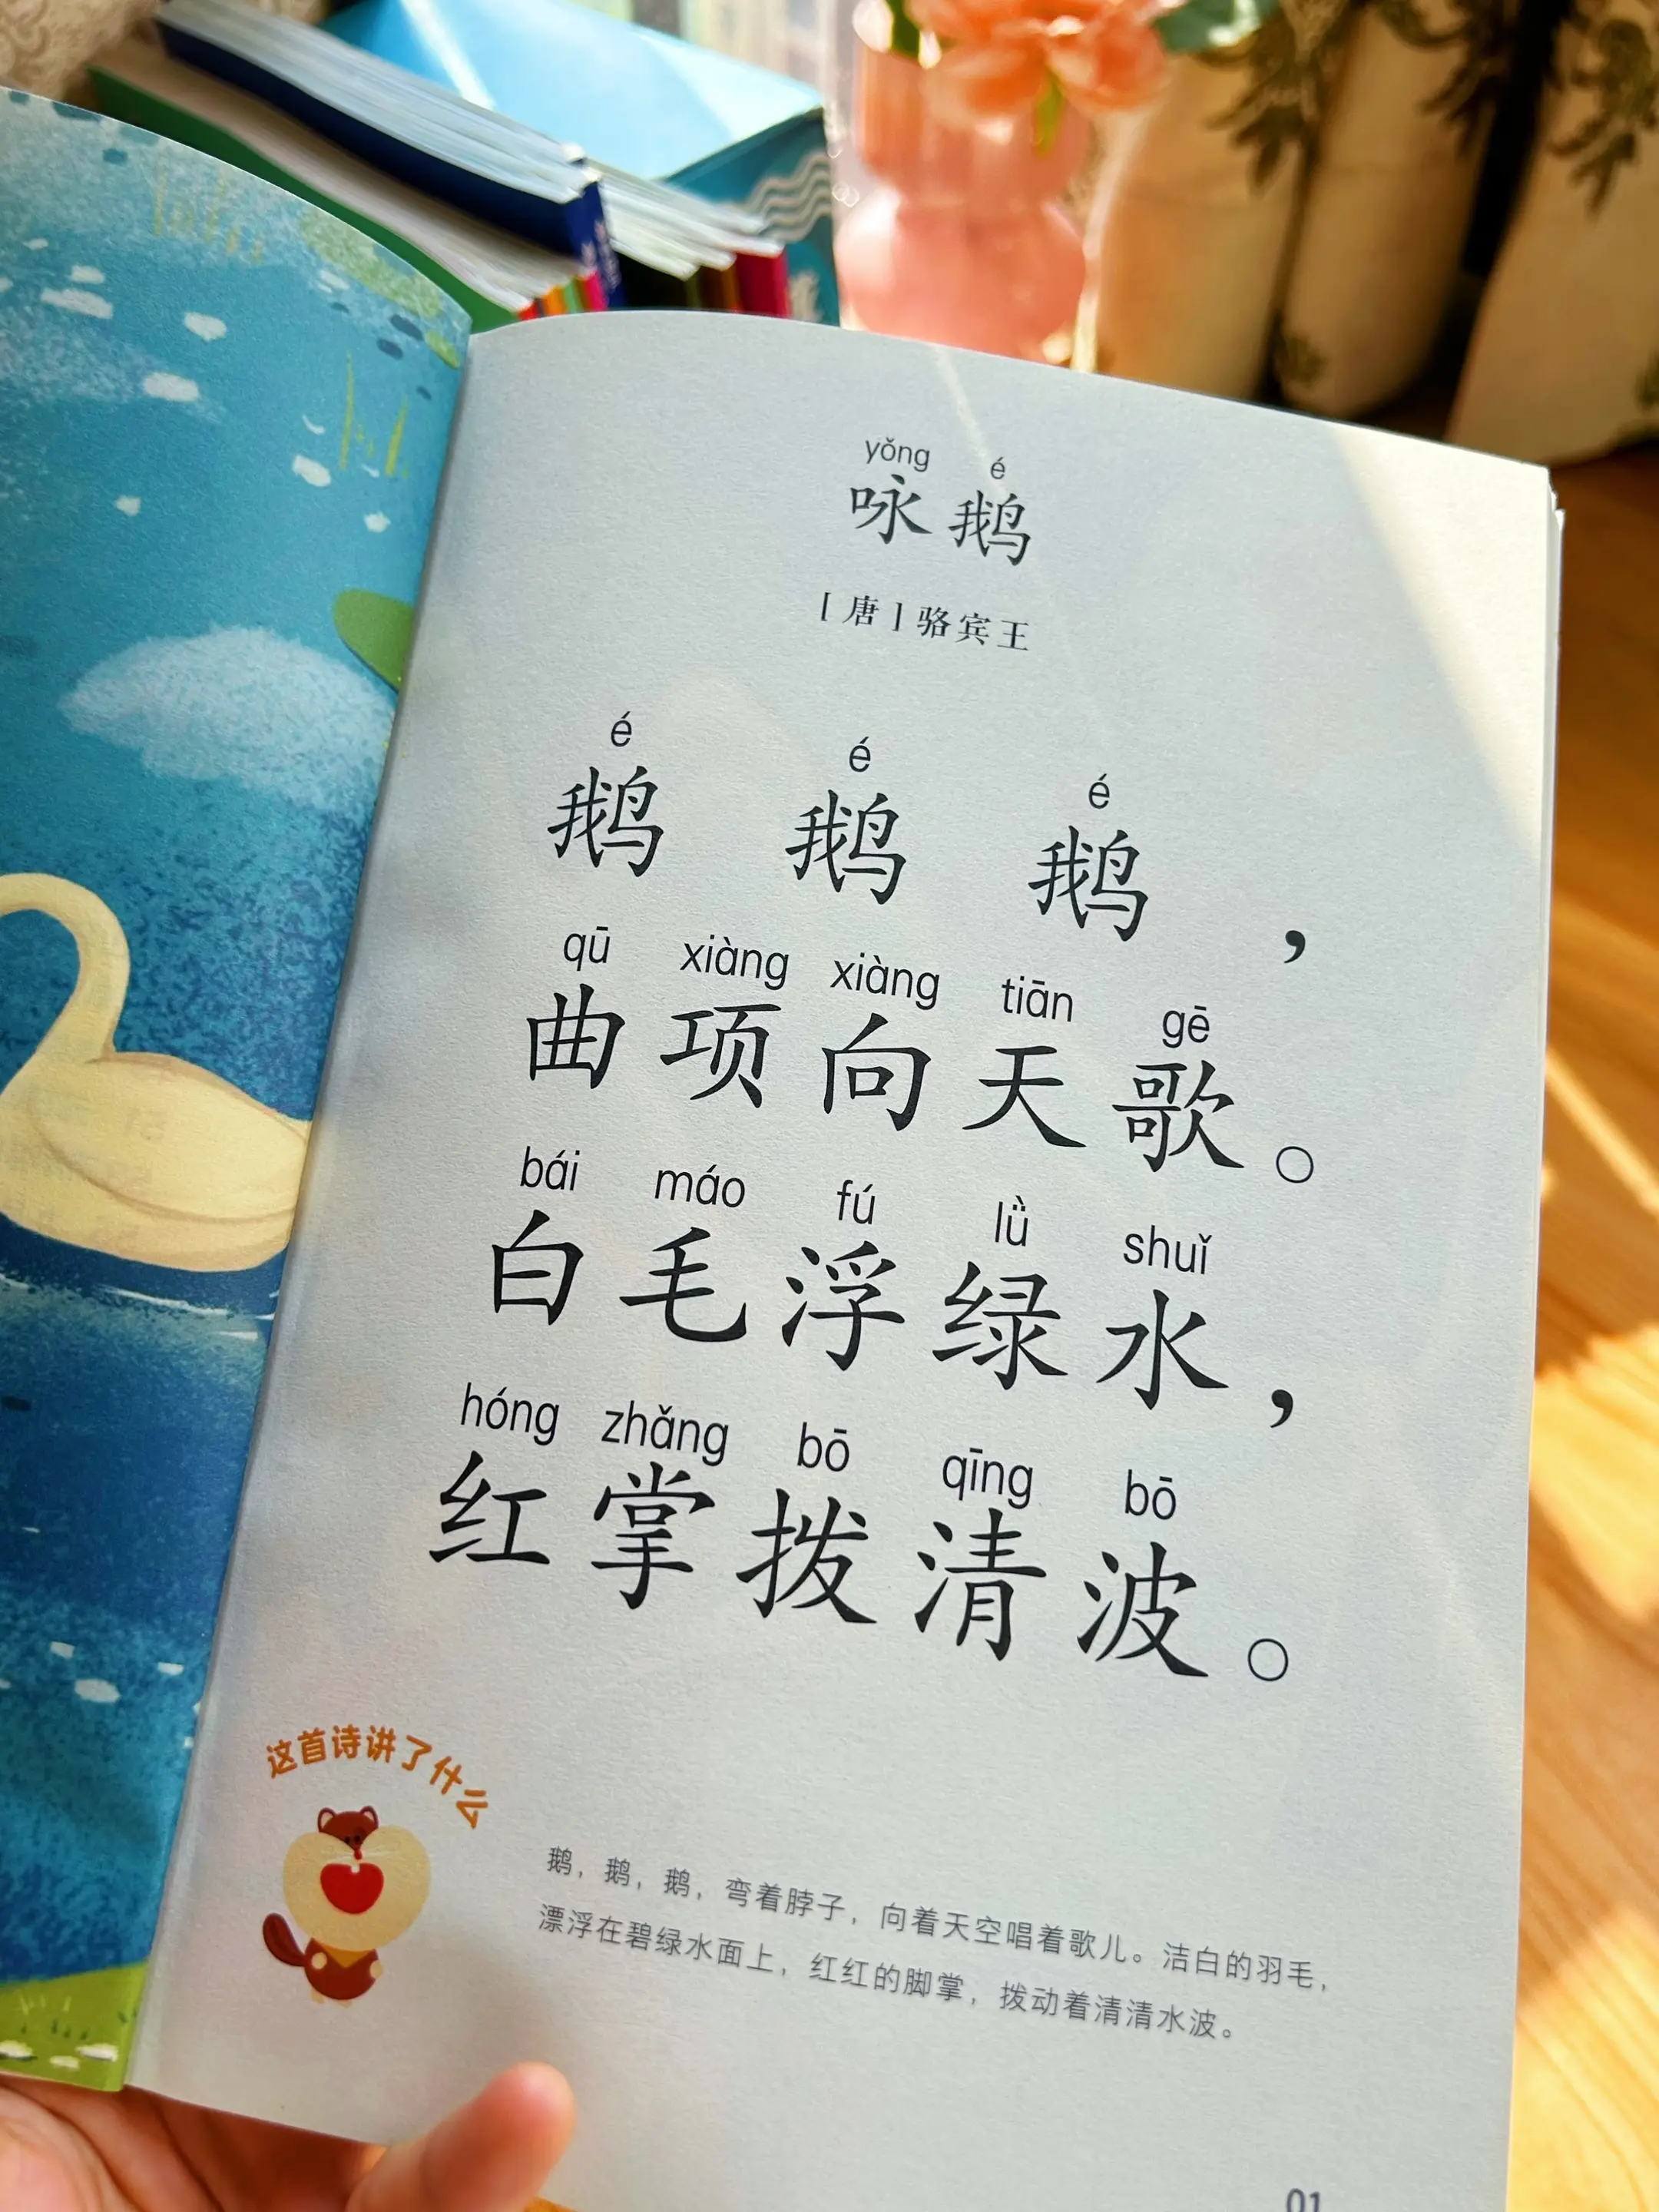 yǒng é
咏鹅
[唐]骆宾王
é é é
鹅 鹅 鹅，
qū xiàng xiàng tiān gē
曲项向天歌。
bái máo fú lǜ shuǐ
白毛浮绿水，
hóng zhǎng bō qīng bō
红掌拨清波。
这首诗讲了什么
鹅，鹅，鹅，弯着脖子，向着天空唱着歌儿。洁白的羽毛，
漂浮在碧绿水面上，红红的脚掌，拨动着清清水波。
01